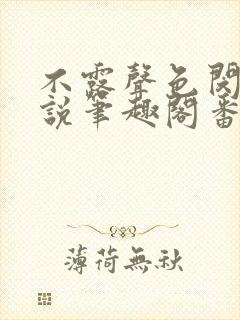 不露聲色閱
說筆趣閣番
薄荷無秋